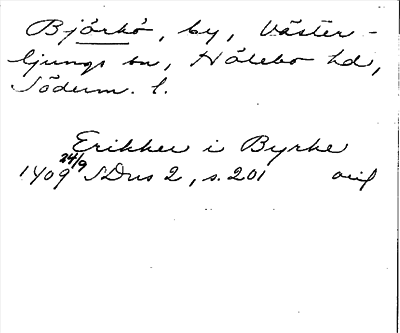 Björkö, by, Väster-
ljungs sn, Hölebo hd,
Söderm. l.
Erikker i Byrke
1409 24/9 SDns 2, s. 201 orig